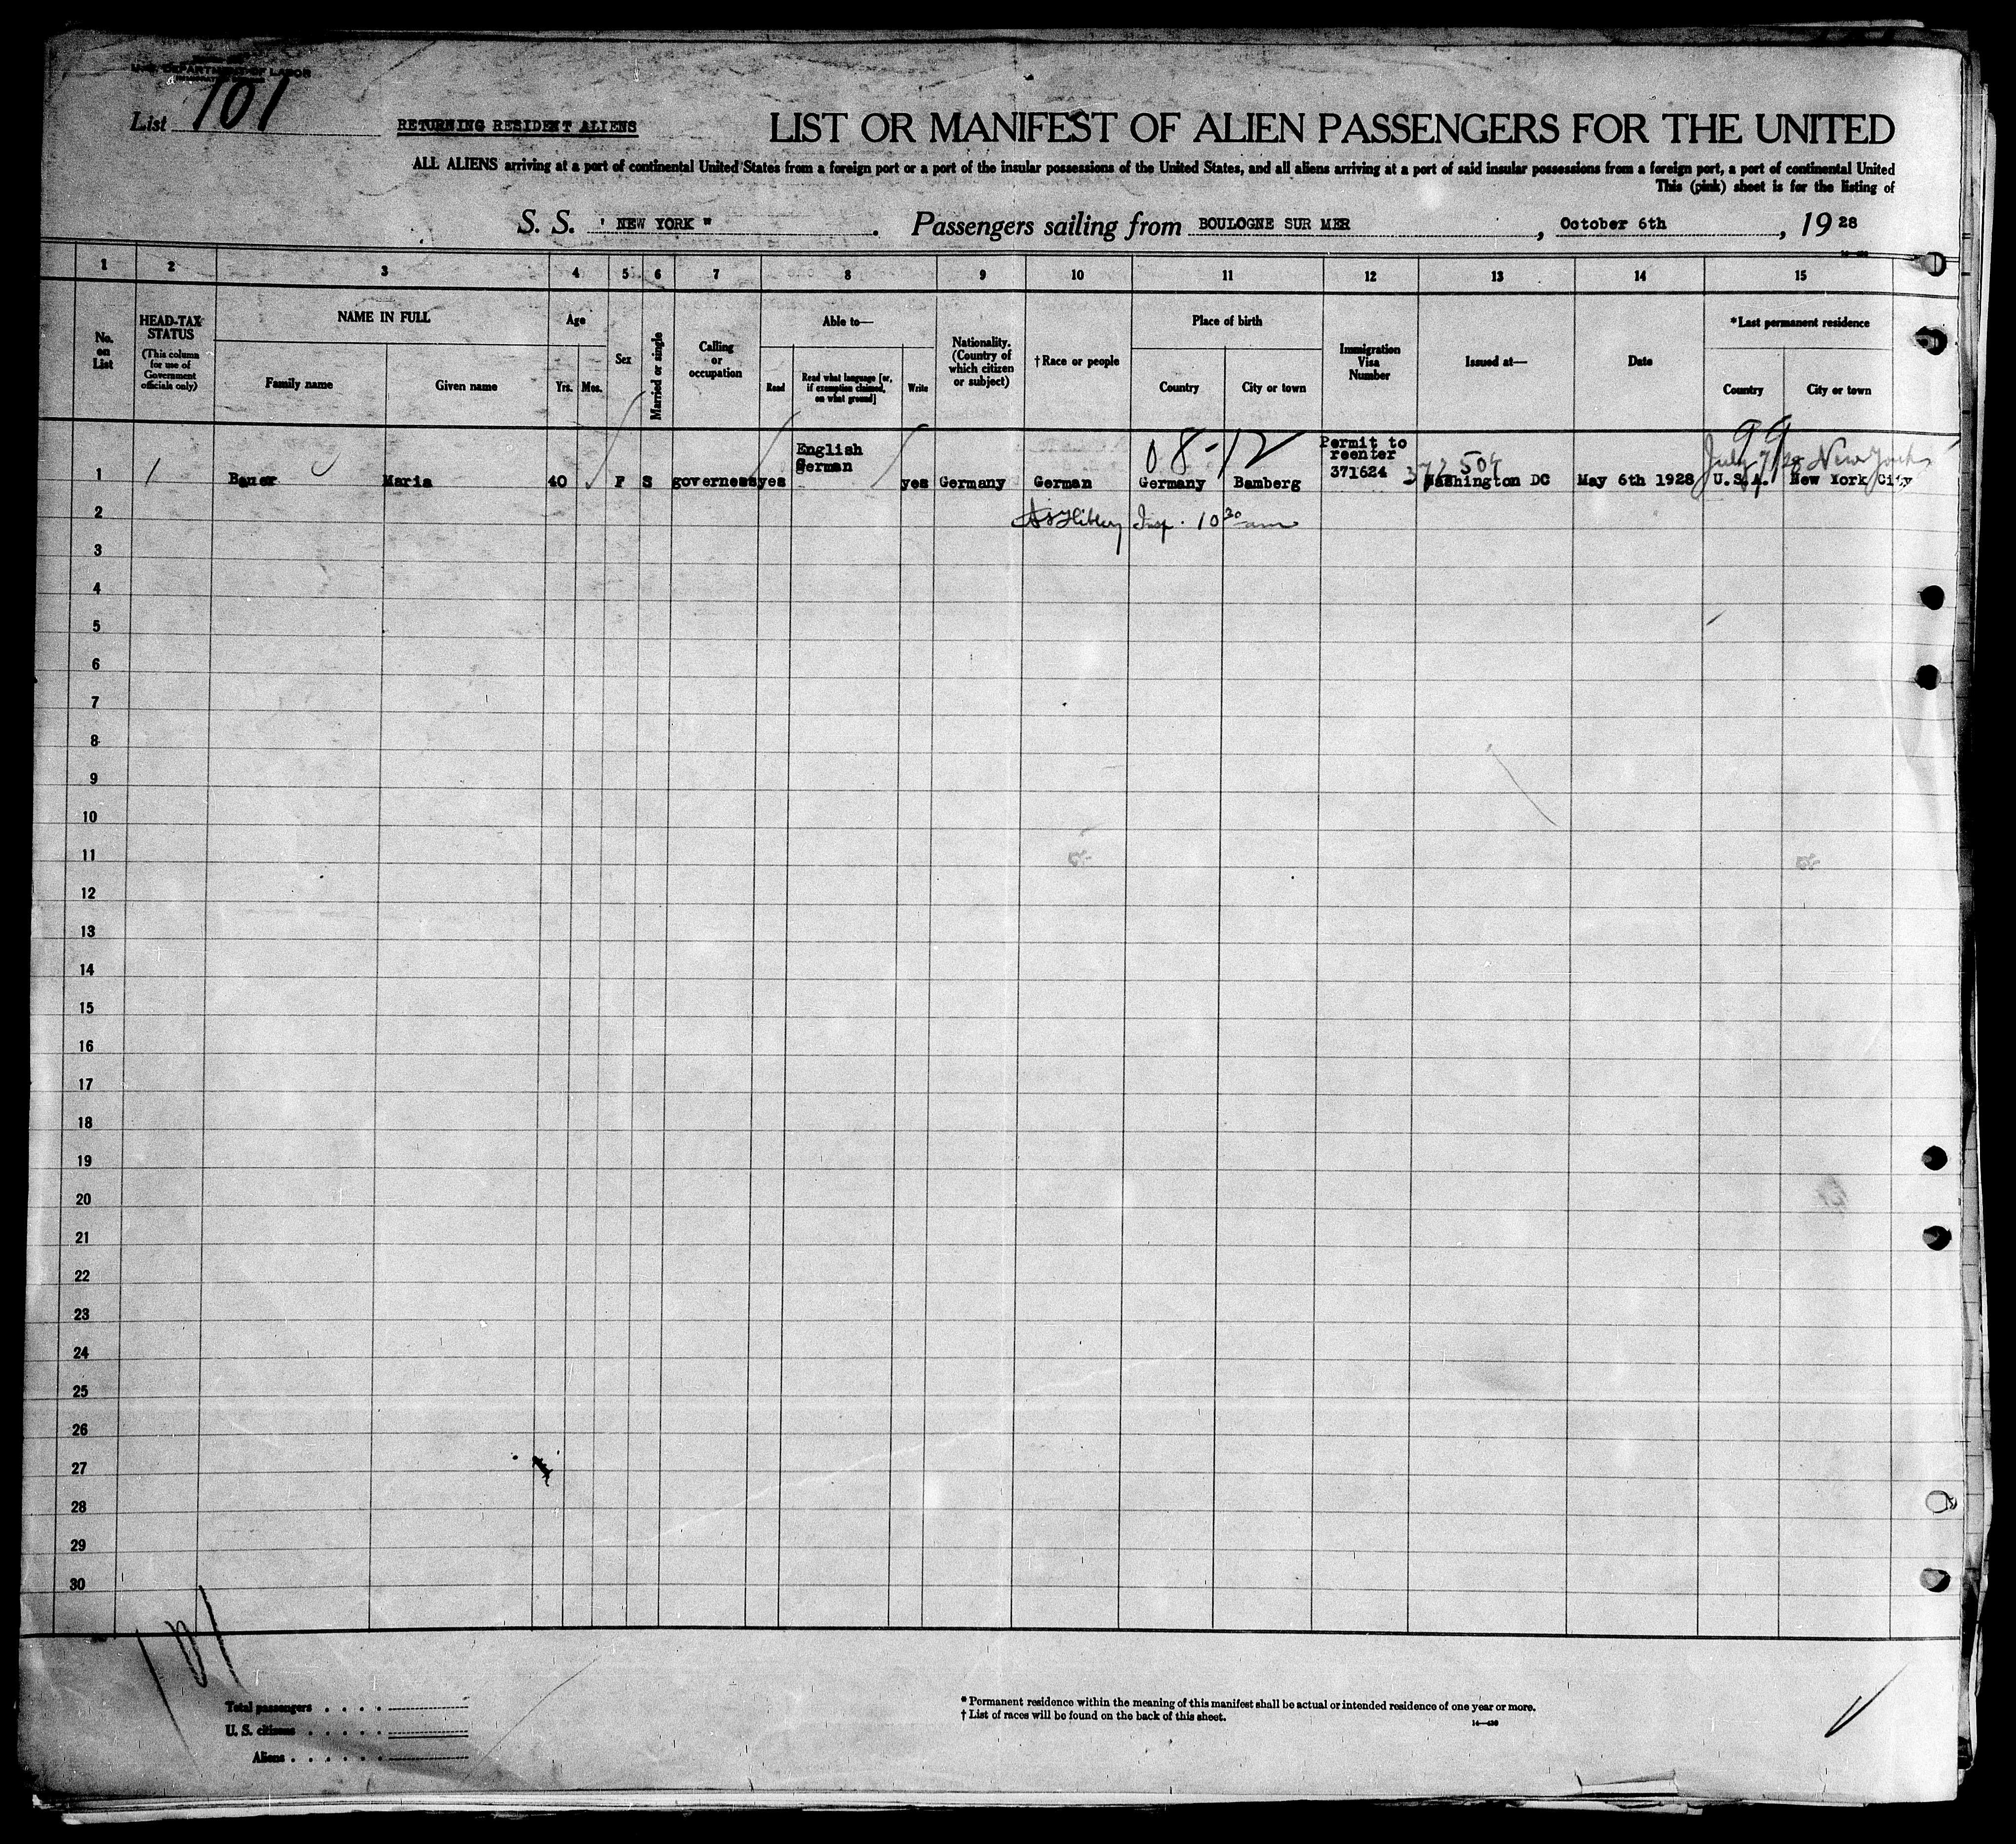 U.S. DEPARTMENT OF LABOR
List 101
RETURNING RESIDENT ALIENS
LIST OR MANIFEST OF ALIEN PASSENGERS FOR THE UNITED
ALL ALIENS arriving at a port of continental United States from a foreign port or a port of the insular possessions of the United States, and all aliens arriving at a port of said insular possessions from a foreign port, a port of continental United
This (pink) sheet is for the listing of
S. S. ' NEW YORK " . Passengers sailing from BOULOGNE SUR MER , October 6th , 19 28
1 2 3 4 5 6 7 8 9 10 11 12 13 14 15
No. on List
HEAD-TAX STATUS
(This column for use of Government officials only)
NAME IN FULL
Family name
Given name
Age
Yrs.
Mos.
Sex
Married or single
Calling or occupation
Able to—
Read
Read what language [or, if exemption claimed, on what ground]
Write
Nationality. (Country of which citizen or subject)
† Race or people
Place of birth
Country
City or town
Immigration Visa Number
Issued at—
Date
*Last permanent residence
Country
City or town
08-12
99
July 7/28 New York
Permit to reenter 371624
English German
1 Bauer Maria 40 F S governess yes yes Germany German Germany Bamberg Washington DC May 6th 1928 U.S.A. New York City
372504
2 Insp. 10 30 am
3
4
5
6
7
8
9
10
11
12
13
14
15
16
17
18
19
20
21
22
23
24
25
26
27
28
29
30
101
Total passengers . . . .
U. S. citizens . . . . .
Aliens . . . . . .
* Permanent residence within the meaning of this manifest shall be actual or intended residence of one year or more.
† List of races will be found on the back of this sheet.
14—430